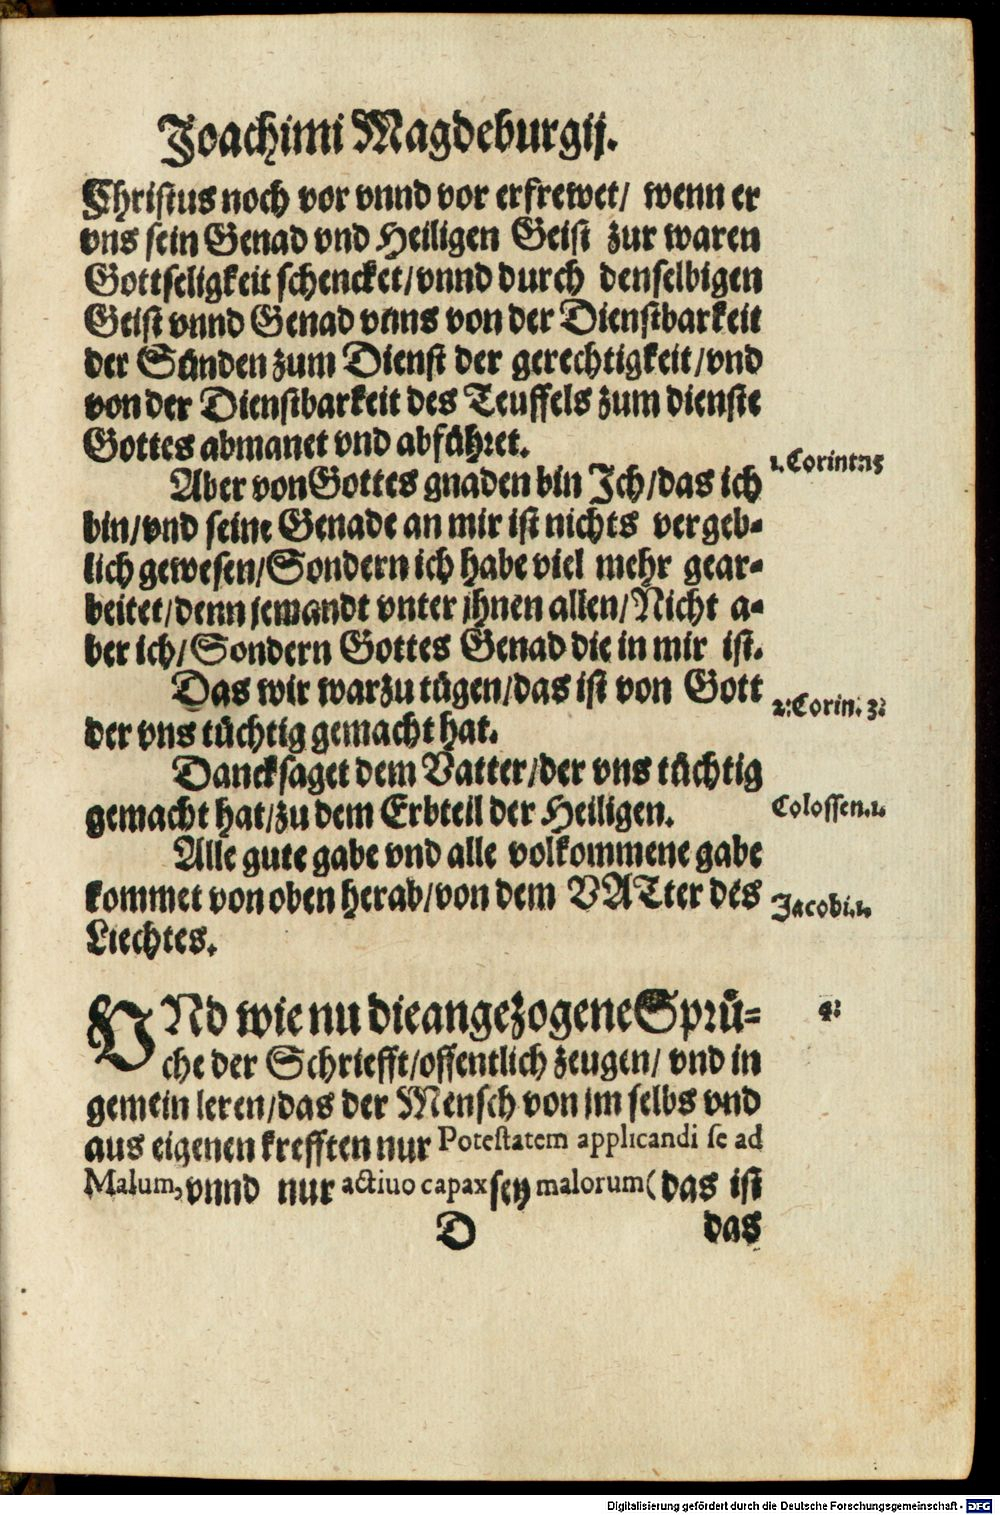 Joachimi Magdeburgij.
Christus noch vor vnnd vor erfrewet/ wenn er
vns sein Genad vnd Heiligen Geist zur waren
Gottseligkeit schencket/vnnd durch denselbigen
Geist vnnd Genad vnns von der Dienstbarkeit
der Sünden zum Dienst der gerechtigkeit/vnd
von der Dienstbarkeit des Teuffels zum dienste
Gottes abmanet vnd abfühꝛet.
Aber von Gottes gnaden bin Ich/das ich
1. Corint. 15
bin/vnd seine Genade an mir ist nichts vergeb-
lich gewesen/Sondern ich habe viel mehr gear-
beitet/denn jemandt vnter jhnen allen/Nicht a-
ber ich/Sondern Gottes Genad die in mir ist.
Das wir warzu tügen/das ist von Gott
2. Corin. 3.
der vns tüchtig gemacht hat.
Dancksaget dem Vatter/der vns tüchtig
gemacht hat/zu dem Erbteil der Heiligen.
Colossen. 1.
Alle gute gabe vnd alle volkommene gabe
kommet von oben herab/von dem VATter des
Jacobi. 1.
Liechtes.
VNd wie nu die angezogene Spꝛü-
4.
che der Schriefft/offentlich zeugen/ vnd in
gemein leren/das der Mensch von im selbs vnd
aus eigenen krefften nur Potestatem applicandi se ad
Malum, vnnd nur actiuo capax sey malorum (das ist
D
das
Digitalisierung gefördert durch die Deutsche Forschungsgemeinschaft - DFG